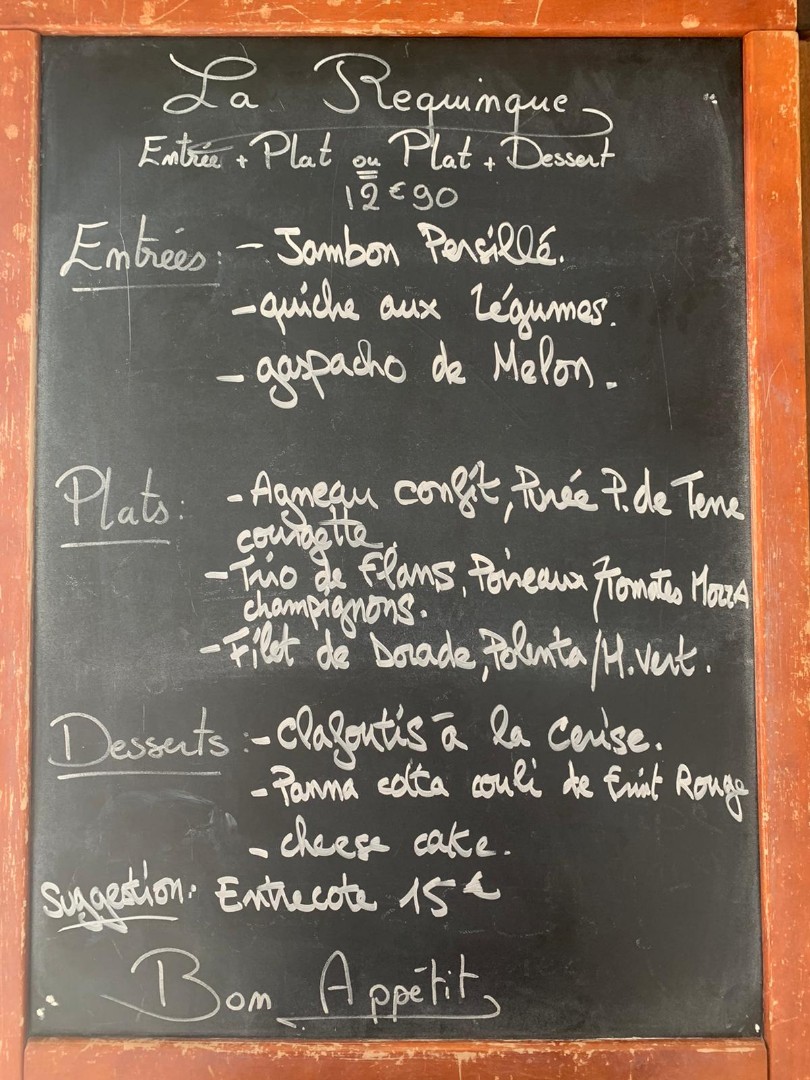 La Requinque
Entrée + Plat ou Plat + Dessert
12€90
Entrées: - Jambon Persillé.
- quiche aux légumes.
- gaspacho de Melon.
Plats: - Agneau confit, Purée P. de Terre
courgette.
- Trio de flans, Poireaux / tomates MozzA
champignons.
- Filet de Dorade, Polenta / H. vert.
Desserts: - clafoutis à la cerise.
- Panna cotta couli de Fruit Rouge
- cheese cake.
Suggestion: Entrecote 15€
Bon Appétit